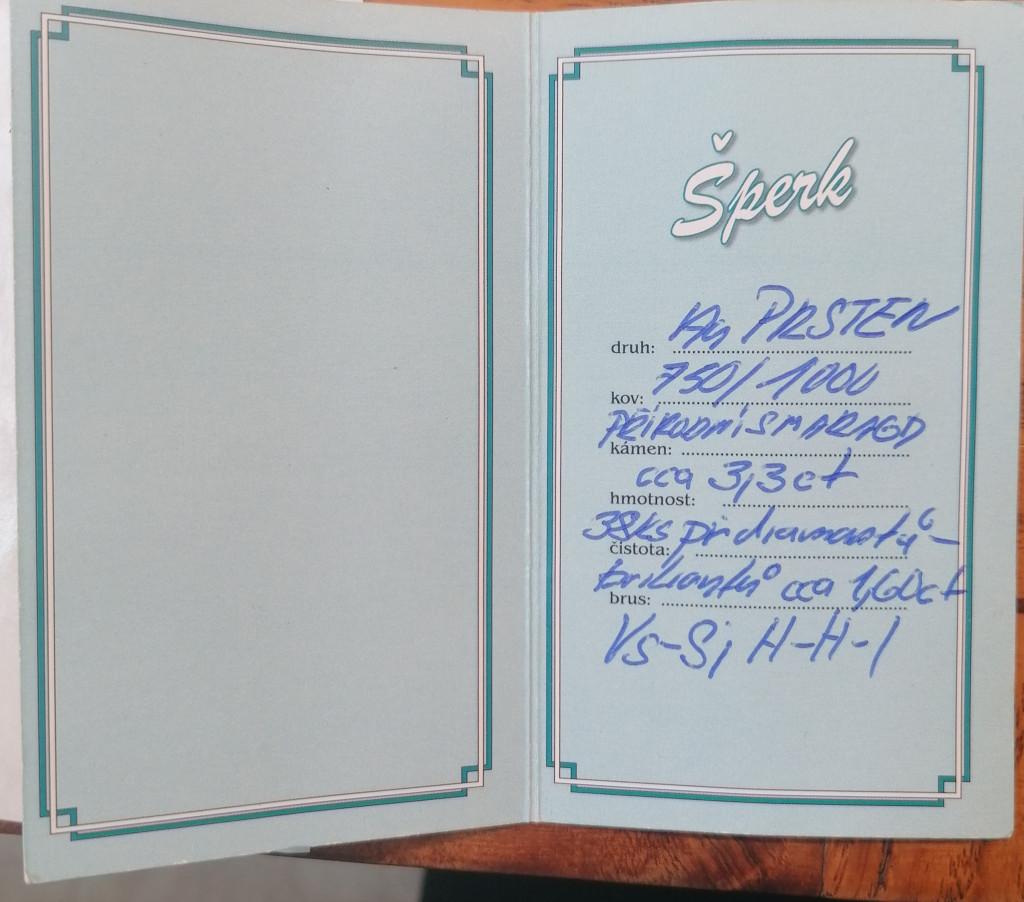 Šperk
druh: PRSTEN
kov: 750/1000
kámen: PŘÍRODNÍ SMARAGD
hmotnost: cca 3,3 ct
čistota: 38ks př diamantů -
brus: briliantů cca 1,60 ct
Vs-Si H-H-I